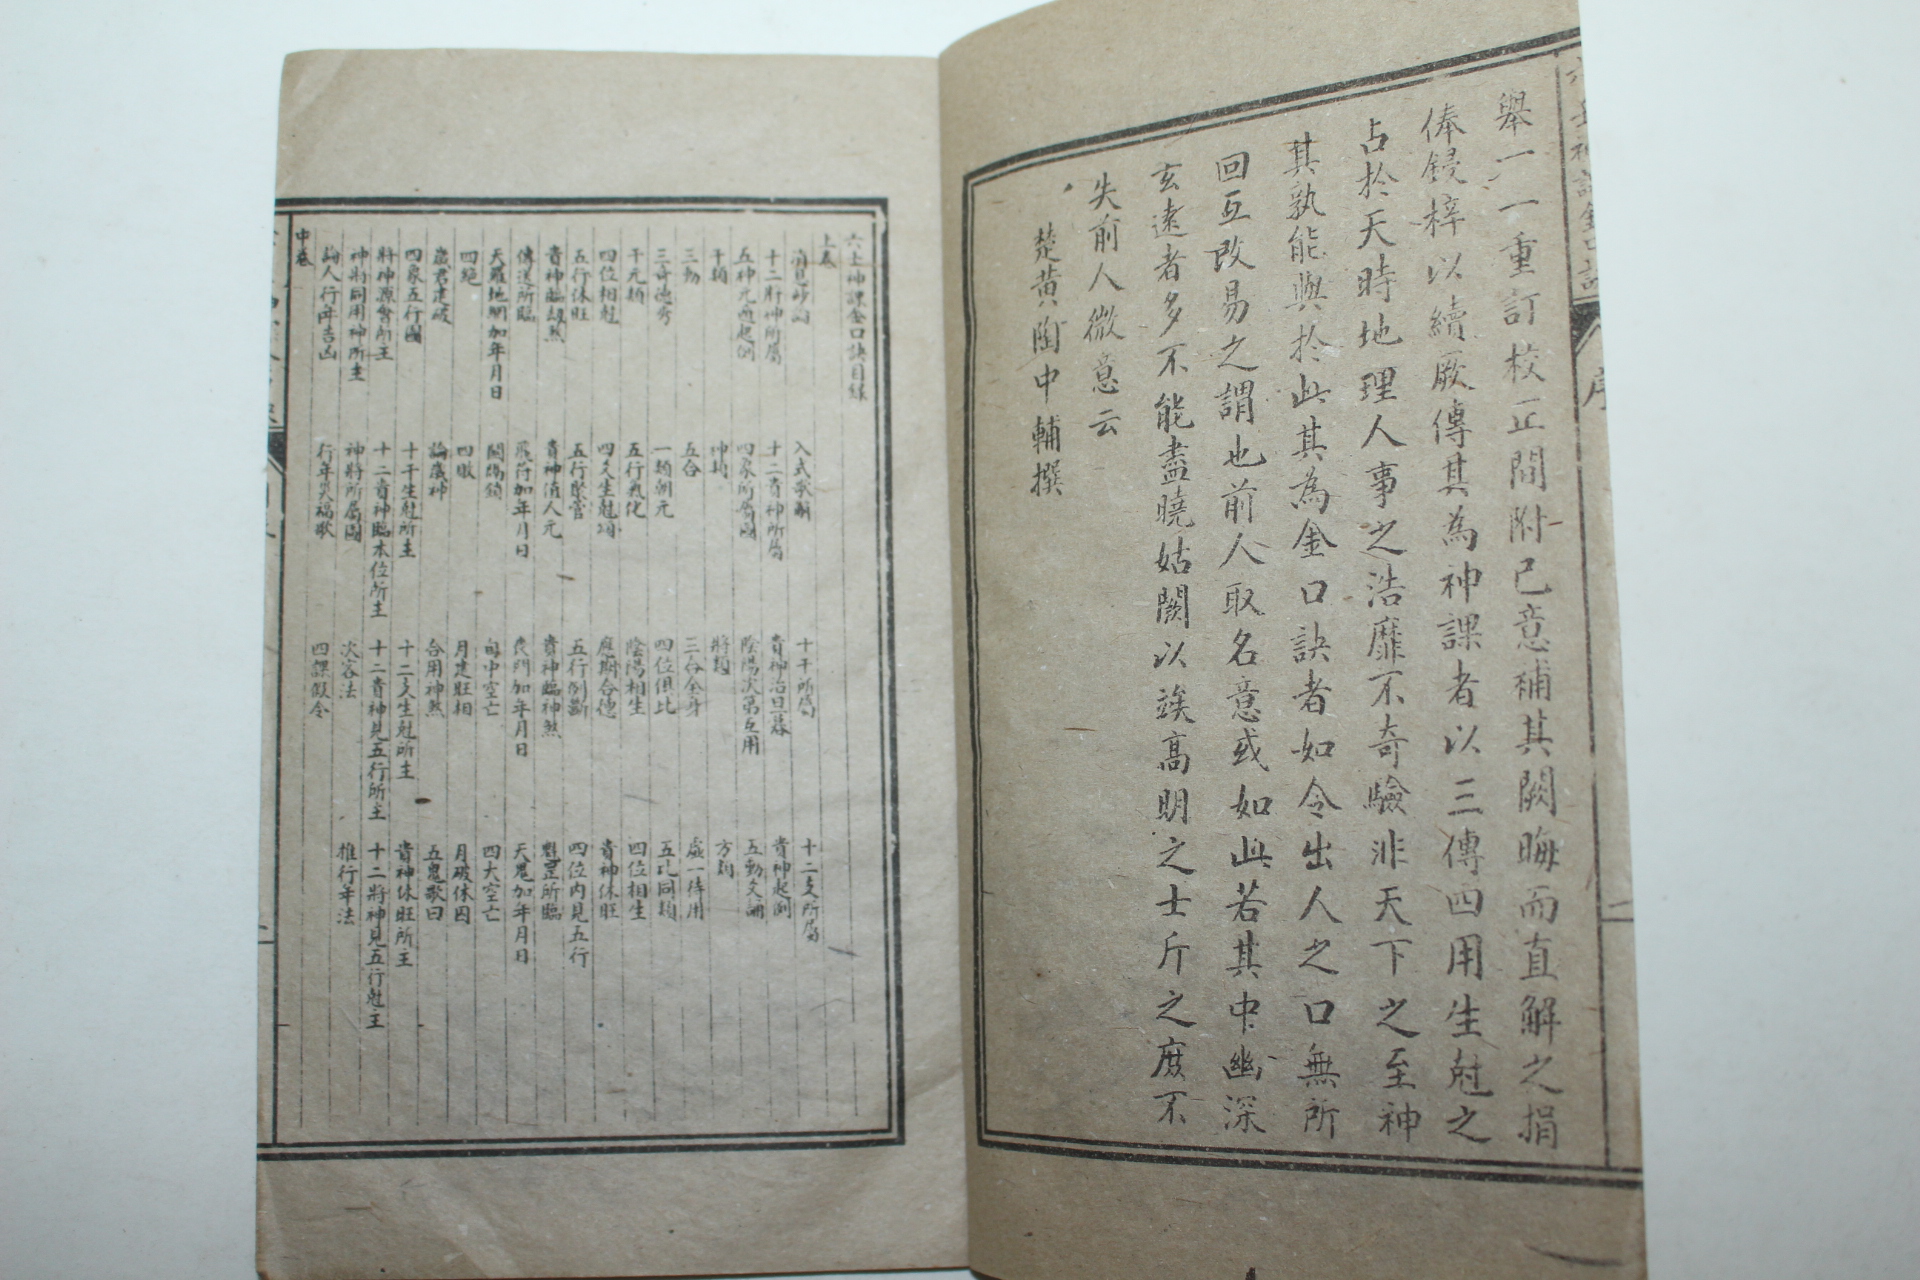 舉一一重訂校正間附已意補其闕晦而直解之捐
俸鋟梓以續厥傳其為神課者以三傳四用生尅之
占於天時地理人事之浩靡不奇驗非天下之至神
其孰能與於此其為金口訣者如令出人之口無所
回互改易之謂也前人取名意或如此若其中幽深
玄遠者多不能盡曉姑闕以俟高明之士斤之庶不
失前人微意云
楚黃陶中輔撰
序
二
六壬神課金口訣目錄
上卷
入式歌解 十干所屬 十二支所屬
十二肝神所屬 十二貴神所屬 貴神治旦暮 貴神起例
五神元遁起例 四象所屬圖 陰陽次第互用 五動爻誦
干類 神類 將類 方類
三動 五合 三合全身 虛一待用
三奇德秀 一類朝元 四位俱比 五比同類
干元類 五行氣化 陰陽相生 四位相生
四位相尅 四爻生尅頌 應期合德 貴神休旺
五行休旺 五行聚會 五行例斷 四位內見五行
貴神臨劫煞 貴神值人元 貴神臨神煞 魁罡所臨
傳送所臨 飛符加年月日 喪門加年月日 天鬼加年月日
天羅地網加年月日 關隔鎖 旬中空亡 四大空亡
四絕 四敗 月建旺相 月破休囚
歲君建破 論歲神 合用神煞 五鬼歌曰
四象五行圖 十干生尅所主 十二支生尅所主 貴神休旺所主
將神源會所主 十二貴神臨本位所主 十二貴神見五行所主 十二將神見五行尅主
神將同用神所主 神將所屬圖 次客法 推行年法
論人行年吉凶 行年災福歌 四課假令
中卷